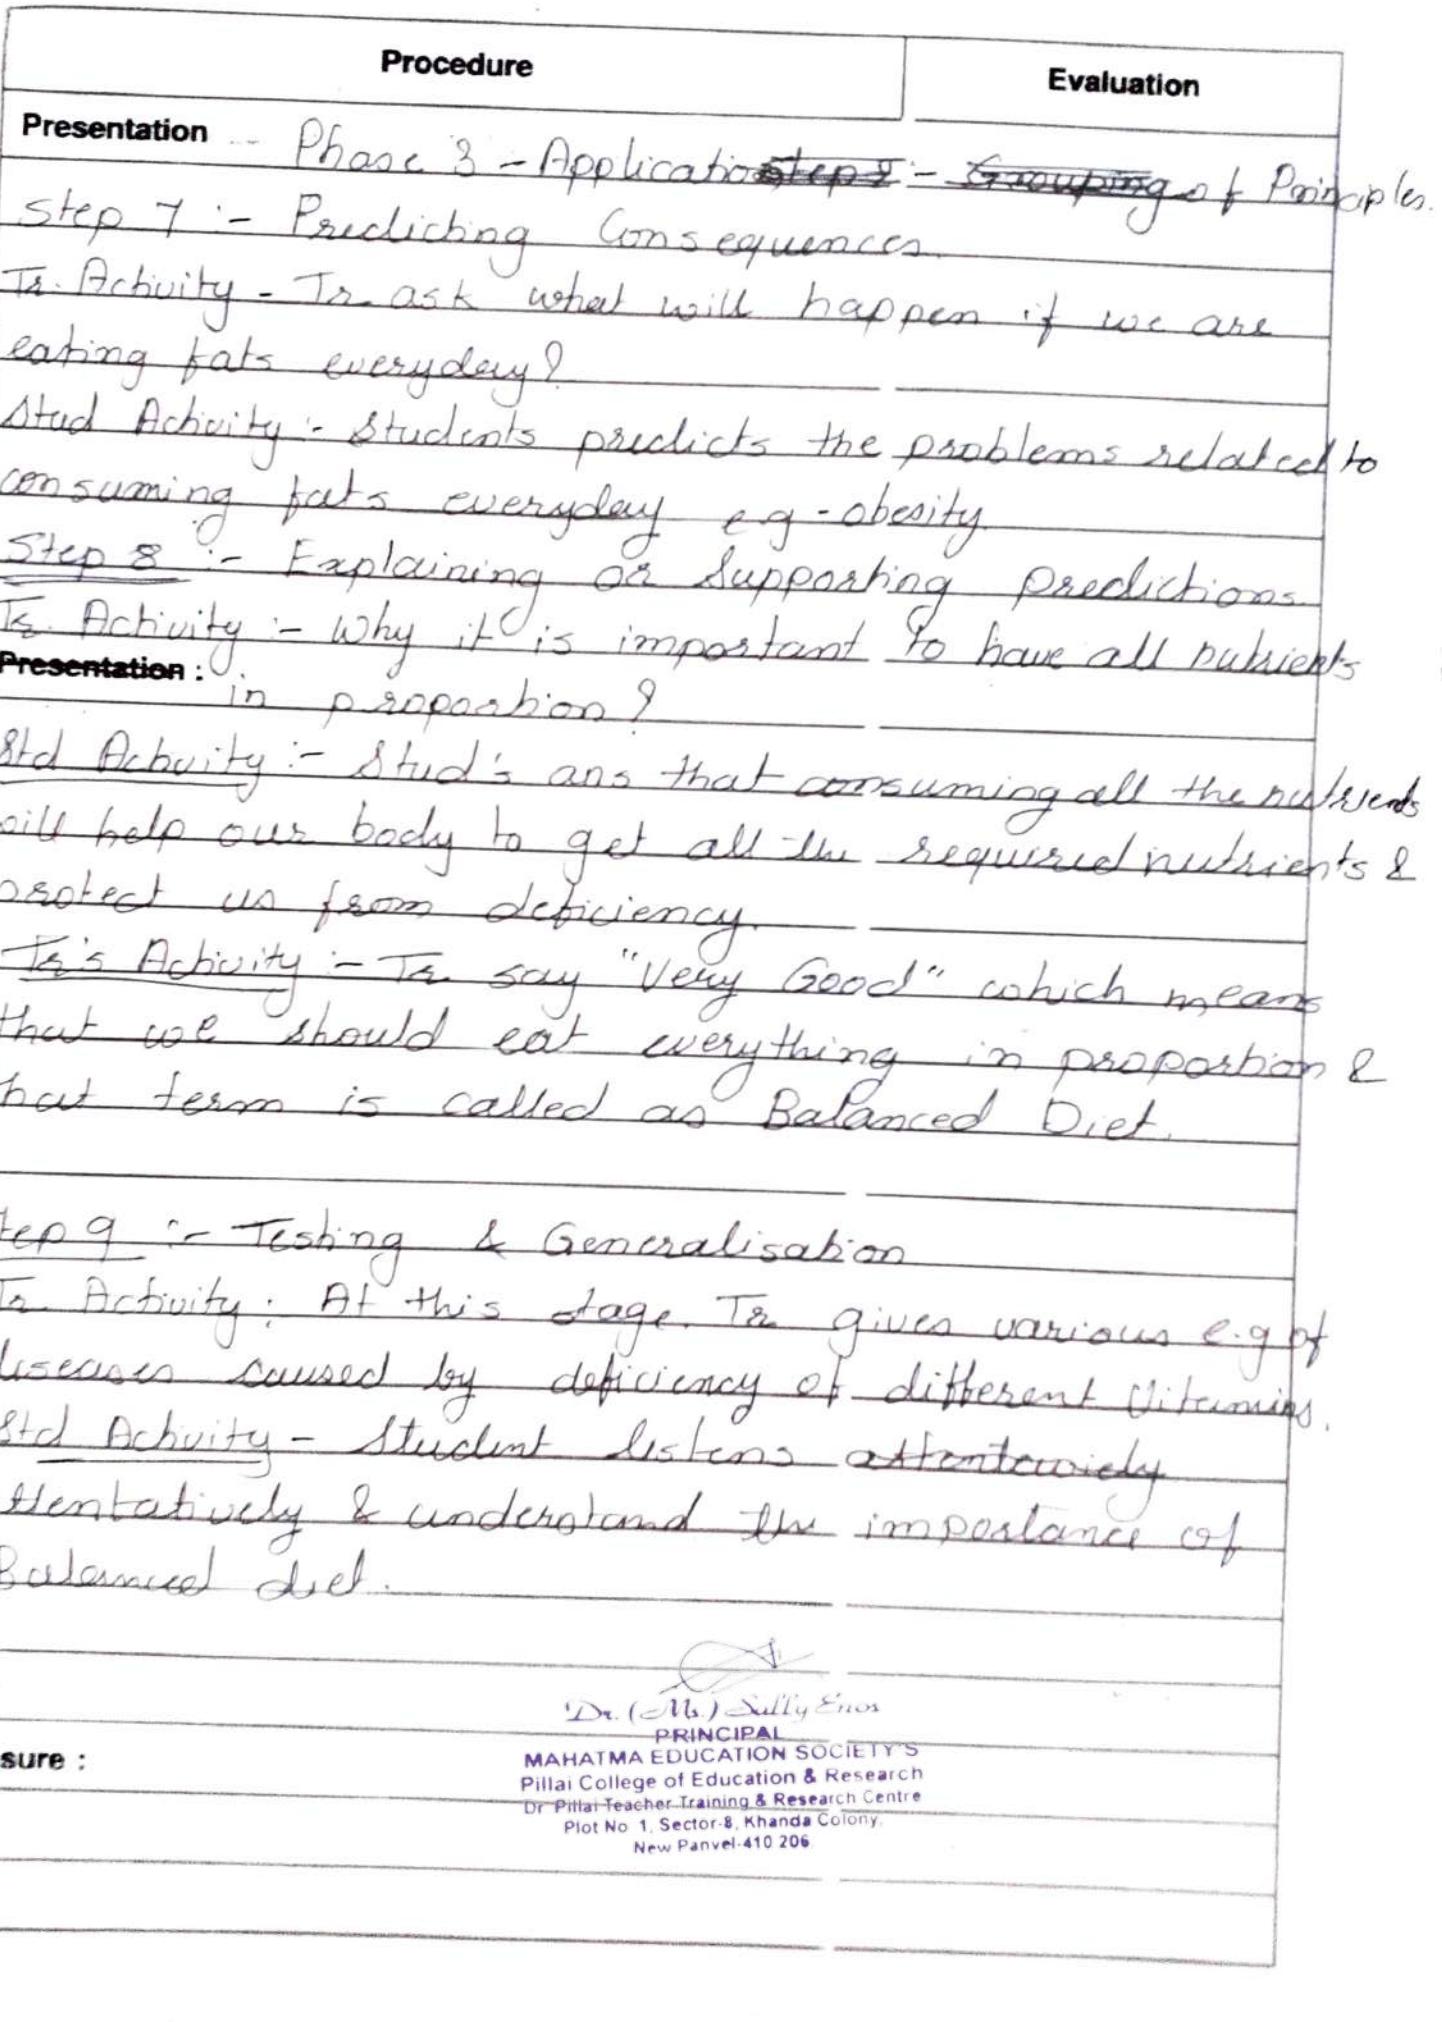 Procedure
Evaluation
Presentation -- Phase 3 - Application of Principles.
Step 7 :- Predicting Consequences.
Tr. Activity - Tr ask what will happen if we are
eating fats everyday?
Stud Activity :- Students predicts the problems related to
consuming fats everyday e.g - obesity.
Step 8 :- Explaining or Supporting predictions.
Tr. Activity :- Why it is important to have all nutrients
Presentation :
in proportion?
Std Activity :- Stud's ans that consuming all the nutrients
will help our body to get all the required nutrients &
protect us from deficiency.
Tr's Activity :- Tr say "Very Good" which means
that we should eat everything in proportion &
hat term is called as Balanced Diet.
tep 9 :- Testing & Generalisation
Tr. Activity : At this stage. Tr gives various e.g of
diseases caused by deficiency of different Vitamins.
Std Activity - Student listens
ttentatively & understand the importance of
Balanced diet.
Dr. (Ms.) Sally Enos
PRINCIPAL
MAHATMA EDUCATION SOCIETY'S
sure :
Pillai College of Education & Research
Dr Pillai Teacher Training & Research Centre
Plot No 1, Sector-8, Khanda Colony,
New Panvel-410 206